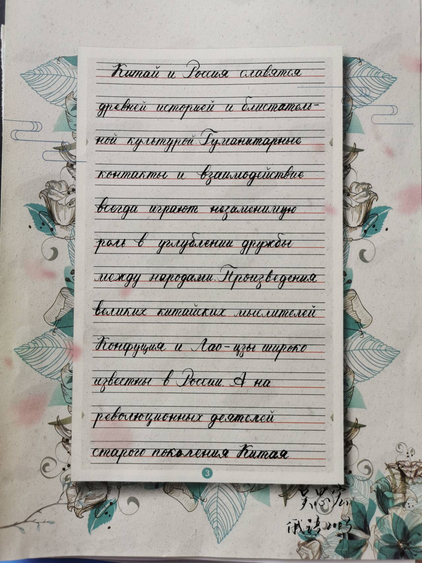 Китай и Россия славятся
древней историей и блистатель-
ной культурой Гуманитарные
контакты и взаимодействие
всегда играют незаменимую
роль в углублении дружбы
между народами. Произведения
великих китайских мыслителей
Конфуция и Лао-цзы широко
известны в России А на
революционных деятелей
старого поколения Китая
3